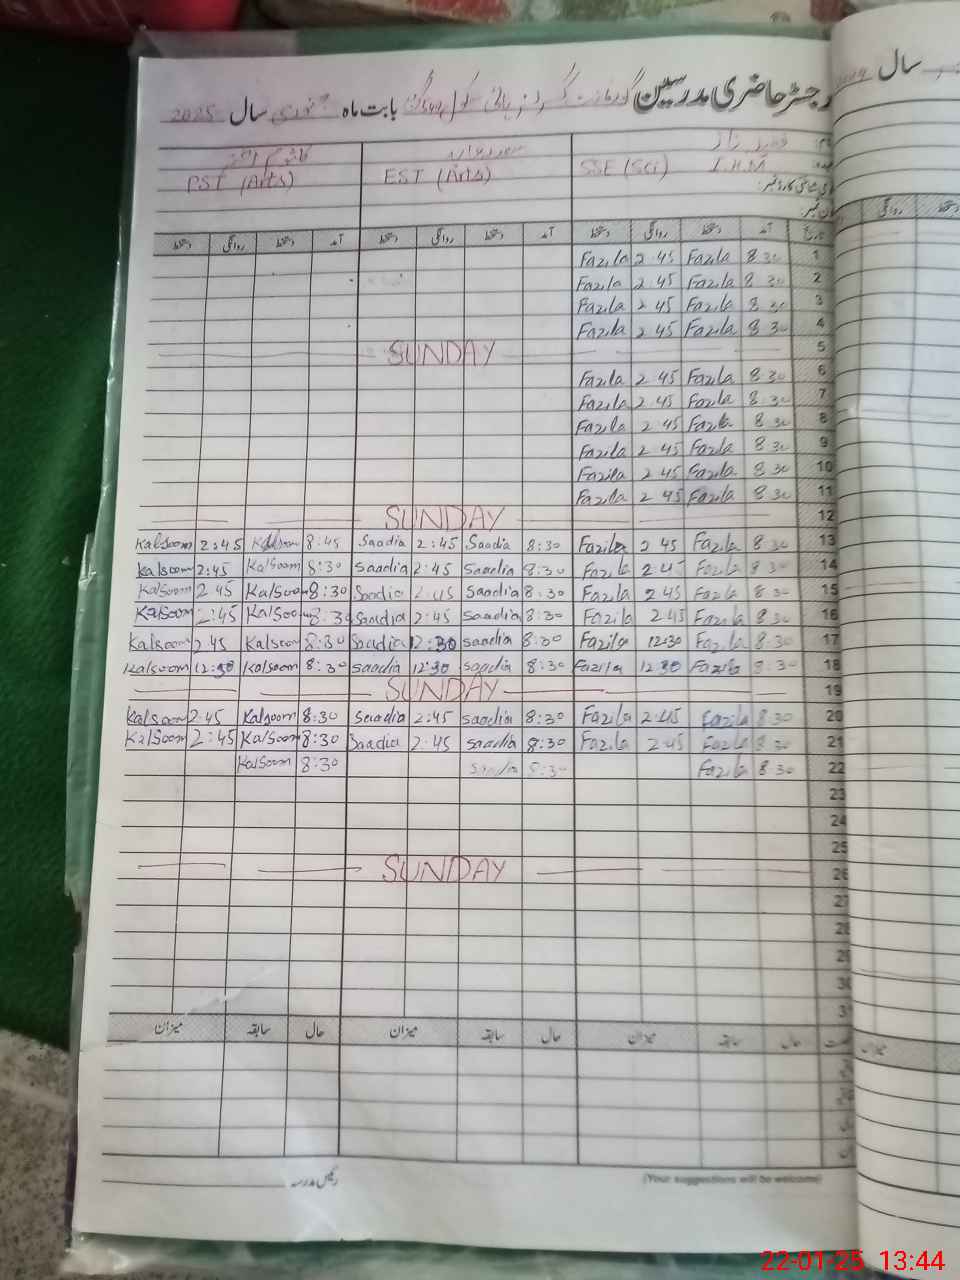 رجسٹر حاضری مدرسین بابت ماہ جنوری سال 2025
سال
PST (Arts) EST (Arts) SSE (Sci) I.H.M
دستخط روانگی دستخط آمد دستخط روانگی دستخط آمد دستخط روانگی دستخط آمد تاریخ
روانگی دستخط
Fazila 2 45 Fazila 8 30 1
Fazila 2 45 Fazila 8 30 2
Fazila 2 45 Fazila 8 30 3
Fazila 2 45 Fazila 8 30 4
SUNDAY 5
Fazila 2 45 Fazila 8 30 6
Fazila 2 45 Fazila 8 30 7
Fazila 2 45 Fazila 8 30 8
Fazila 2 45 Fazila 8 30 9
Fazila 2 45 Fazila 8 30 10
Fazila 2 45 Fazila 8 30 11
SUNDAY 12
Kalsoom 2:45 Kalsoom 8:45 Saadia 2:45 Saadia 8:30 Fazila 2 45 Fazila 8 30 13
Kalsoom 2:45 Kalsoom 8:30 Saadia 2:45 Saadia 8:30 Fazila 2 45 Fazila 8 30 14
Kalsoom 2 45 Kalsoom 8:30 Saadia 2:45 Saadia 8:30 Fazila 2 45 Fazila 8 30 15
Kalsoom 2:45 Kalsoom 8:30 Saadia 2:45 Saadia 8:30 Fazila 2 45 Fazila 8 30 16
Kalsoom 2 45 Kalsoom 8:30 Saadia 12:30 Saadia 8:30 Fazila 12:30 Fazila 8:30 17
Kalsoom 12:30 Kalsoom 8:30 Saadia 12:30 Saadia 8:30 Fazila 12 30 Fazila 8:30 18
SUNDAY 19
Kalsoom 2:45 Kalsoom 8:30 Saadia 2:45 Saadia 8:30 Fazila 2:45 Fazila 8 30 20
Kalsoom 2:45 Kalsoom 8:30 Saadia 2:45 Saadia 8:30 Fazila 2 45 Fazila 8 30 21
Kalsoom 8:30 Saadia 8:30 Fazila 8 30 22
23
24
25
SUNDAY 26
27
28
29
30
31
میزان سابقہ حال میزان سابقہ حال میزان سابقہ حال
میزان
رئیس مدرسہ
(Your suggestions will be welcome)
22-01-25 13:44